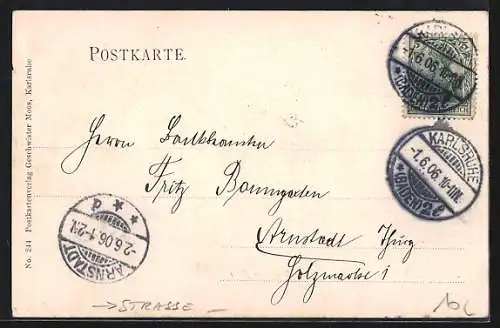 POSTKARTE.
KARLSRUHE
-1.6.06. 10-11N.
*(BADEN)2l
REICH
KARLSRUHE
-1.6.06. 10-11N.
*(BADEN)2l
Herrn
Fritz Baumgarten
Arnstadt Thürg
Holzmarkt 1
ARNSTADT
-2.6.06.1-2N.
→ STRASSE
No. 244 Postkartenverlag Geschwister Moos, Karlsruhe